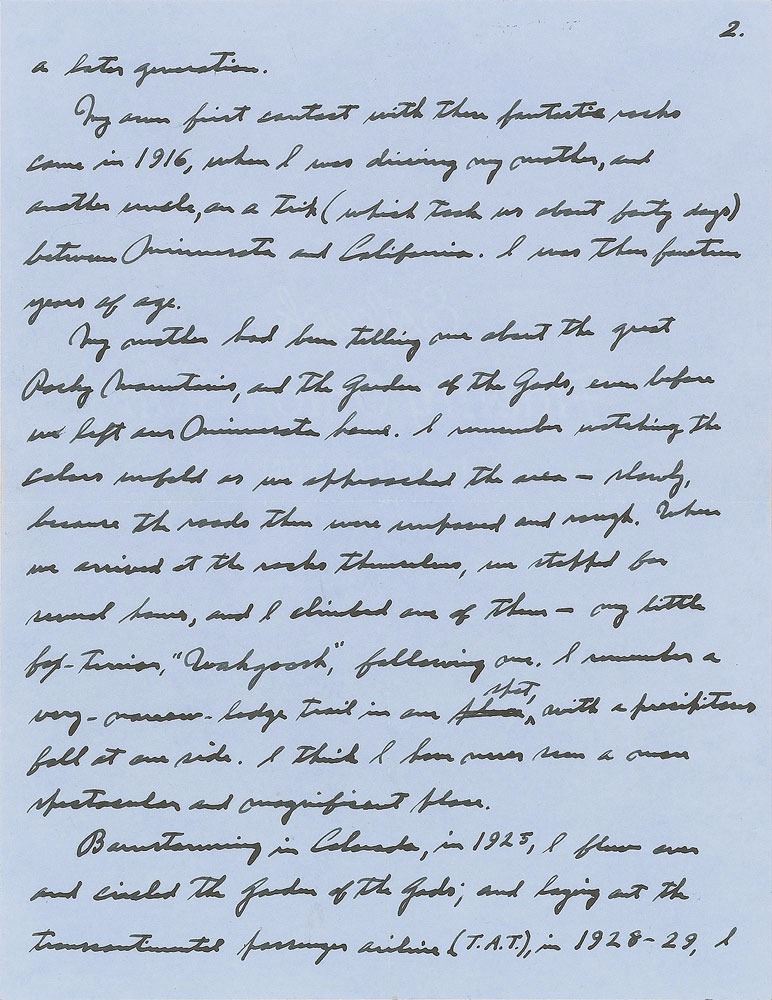 2.
a later generation.
My own first contact with these fantastic rocks
came in 1916, when I was driving my mother, and
another uncle, on a trip (which took us about forty days)
between Minnesota and California. I was then fourteen
years of age.
My mother had been telling me about the great
Rocky Mountains, and the Garden of the Gods, even before
we left our Minnesota home. I remember watching the
colors unfold as we approached the area — slowly,
because the roads then were unpaved and rough. When
we arrived at the rocks themselves, we stopped for
several hours, and I climbed one of them — my little
fox-terrier, "Wahgoosh," following me. I remember a
very-narrow-ledge trail in one spot, with a precipitous
fall at one side. I think I have never seen a more
spectacular and magnificent place.
Barnstorming in Colorado, in 1925, I flew over
and circled the Garden of the Gods; and laying out the
transcontinental passenger airline (T.A.T.), in 1928-29, I